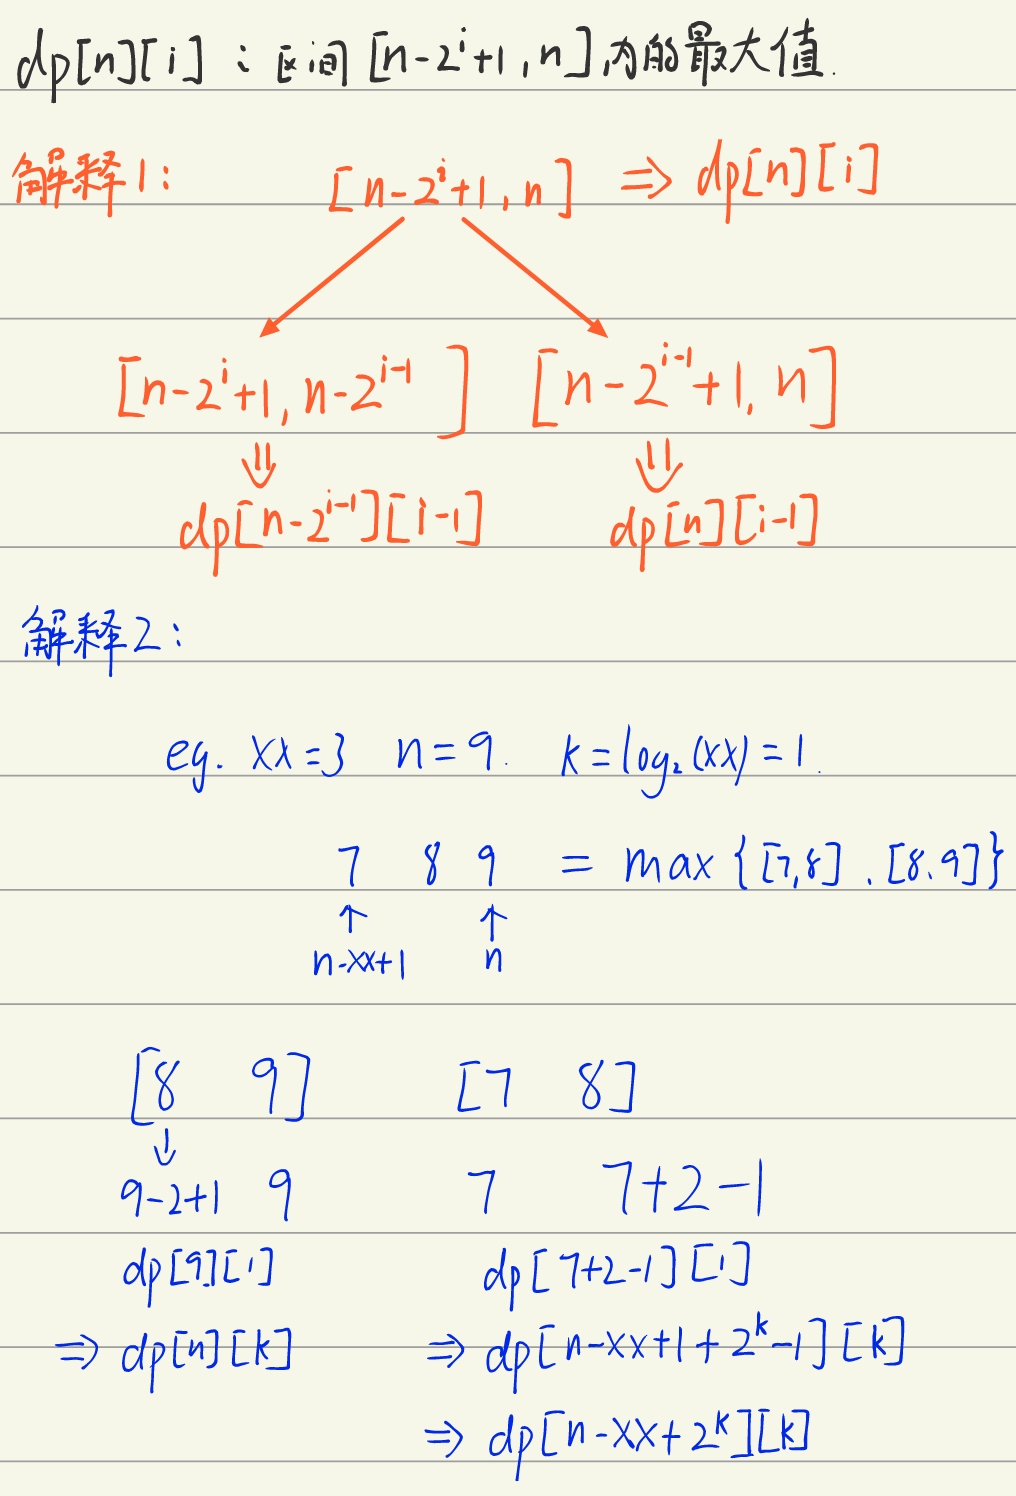 dp[n][i] : 区间 [n-2^i+1, n] 内的最大值.
解释1: [n-2^i+1, n] ⇒ dp[n][i]
[n-2^i+1, n-2^{i-1} ] [n-2^{i-1}+1, n]
⇓ ⇓
dp[n-2^{i-1}][i-1] dp[n][i-1]
解释2:
eg. xx=3 n=9. k=log₂(xx)=1.
7 8 9 = max {[7,8] . [8.9]}
↑ ↑
n-xx+1 n
[8 9] [7 8]
↓
9-2+1 9 7 7+2-1
dp[9][1] dp[7+2-1][1]
⇒ dp[n][k] ⇒ dp[n-xx+1+2^k-1][k]
⇒ dp[n-xx+2^k][k]